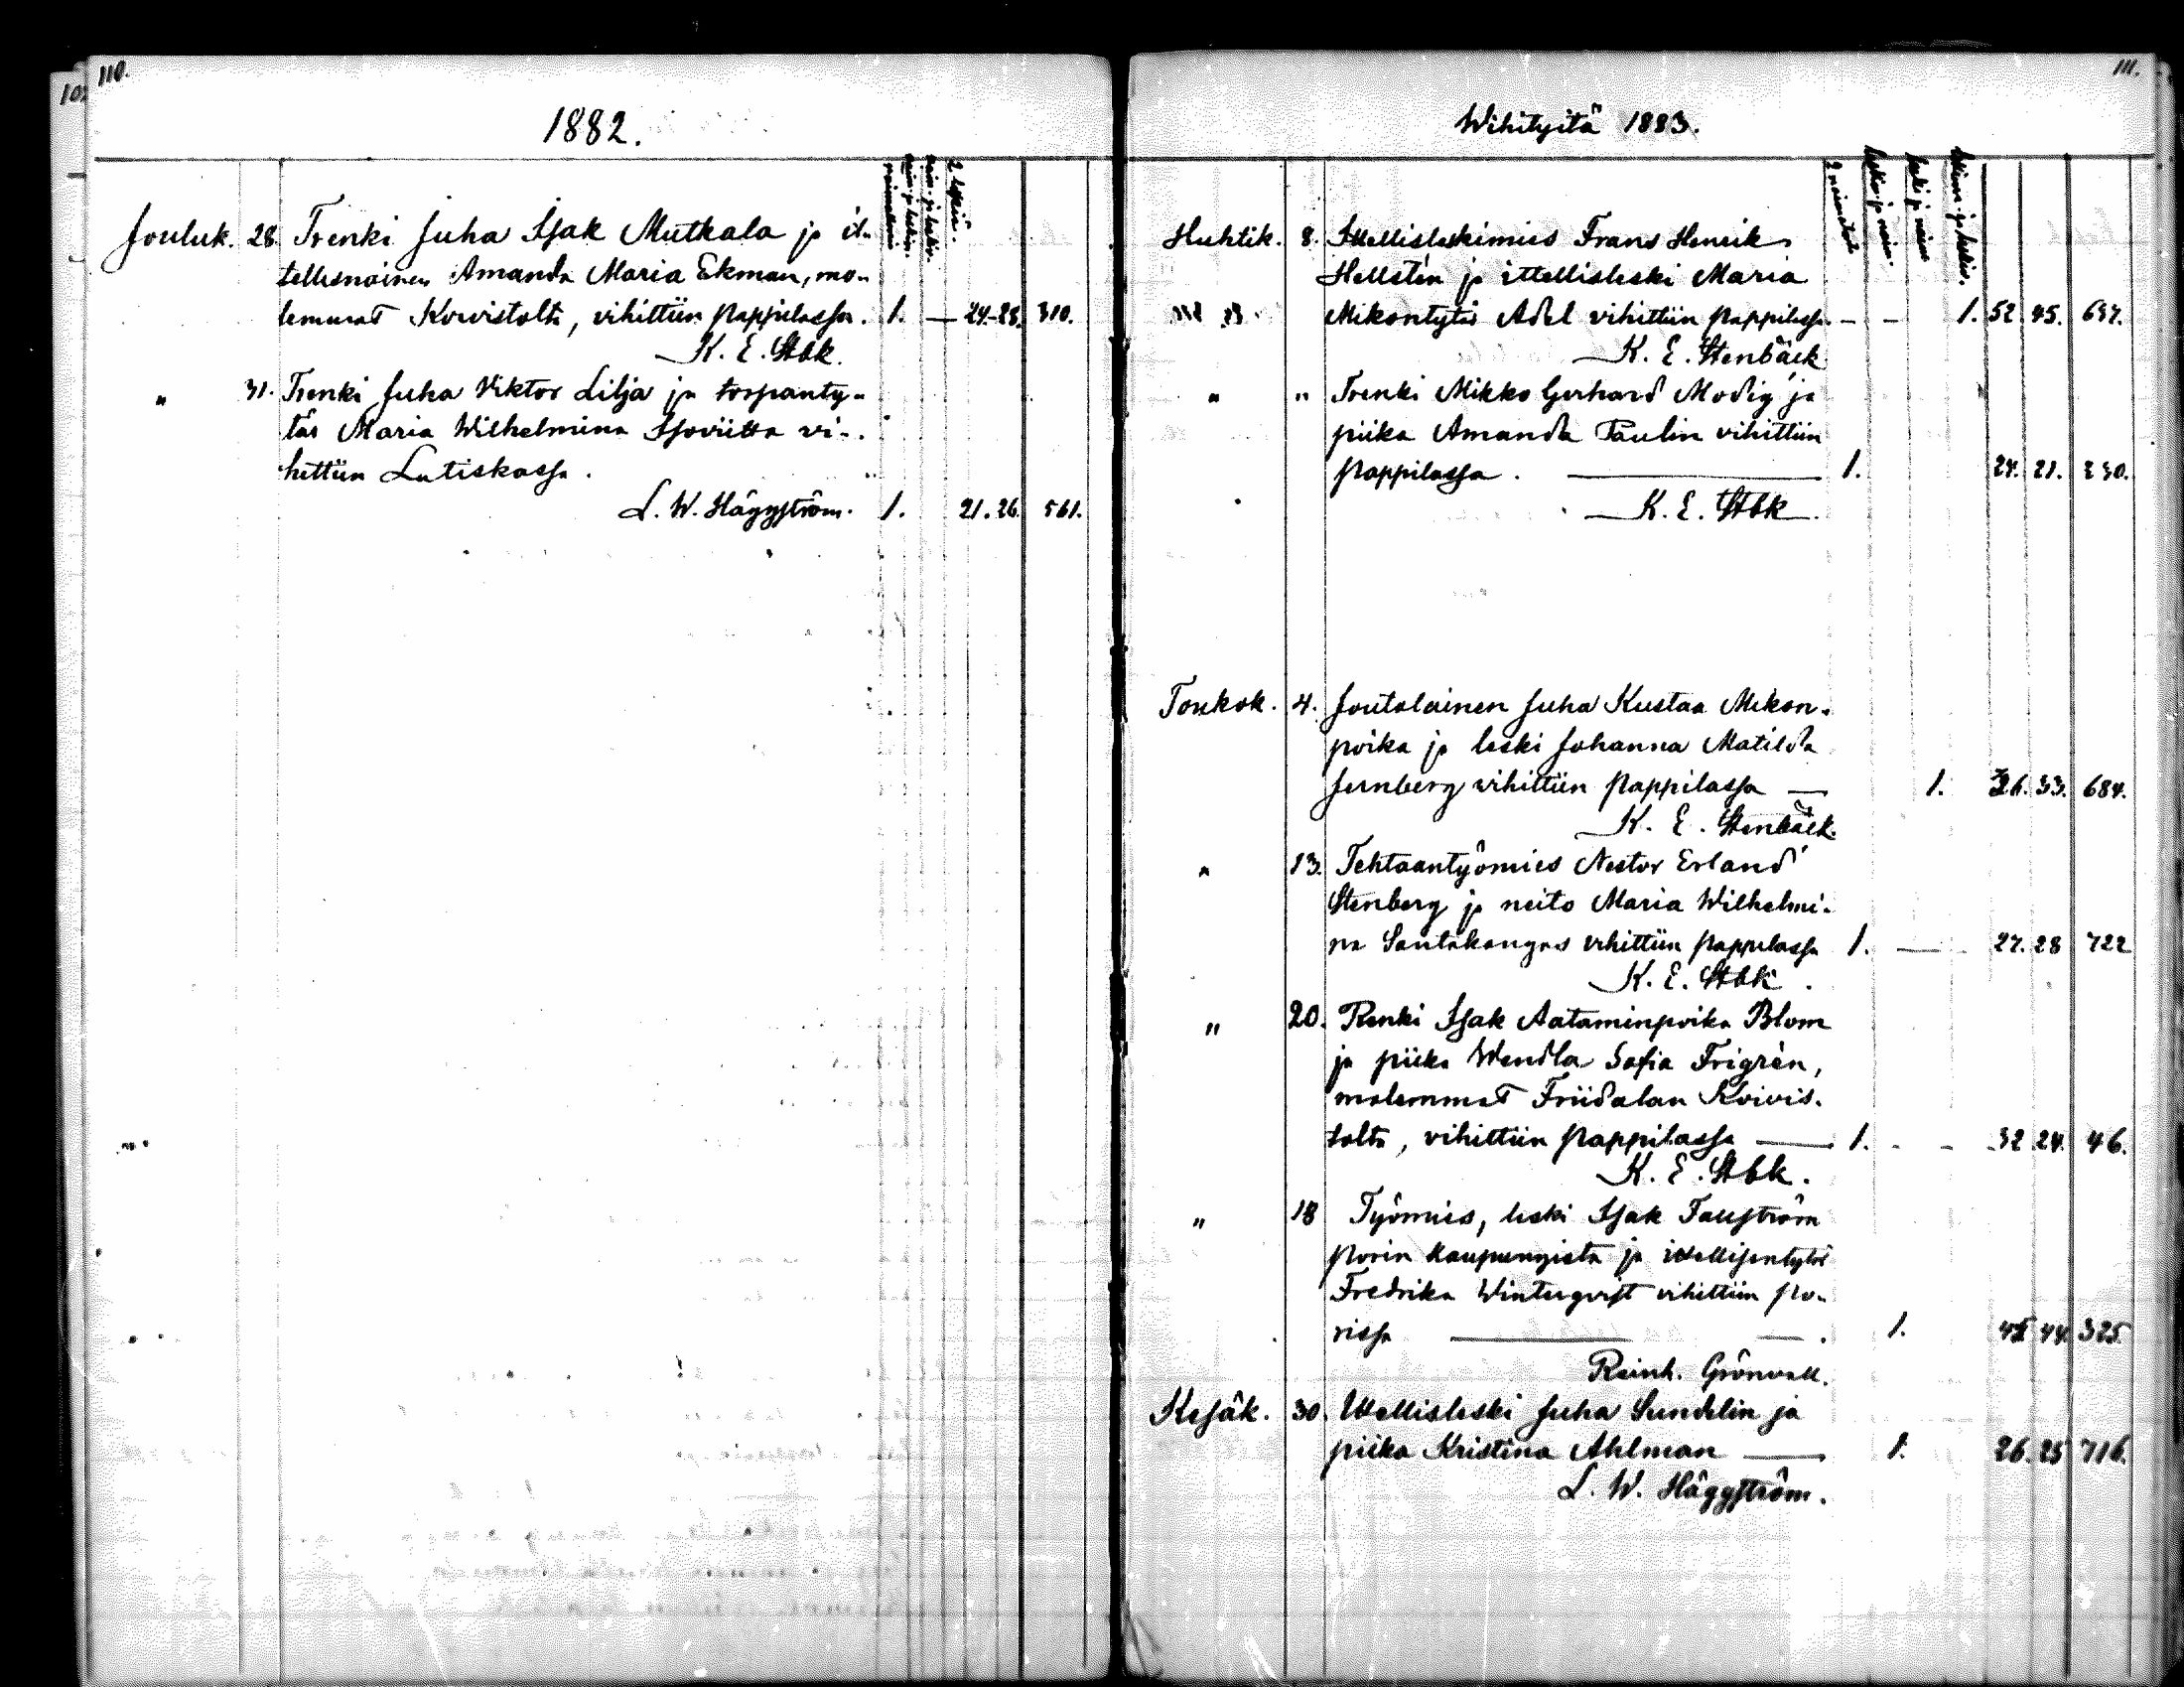 110.
1882.
Jouluk. 28. Trenki Juha Isak Mutkala ja it-
tellisnainen Amanda Maria Ekman, mo-
lemmat Koivistolta, vihittiin pappilassa. 1. — 24. 28. 310.
K. E. Stbk.
" 31. Trenki Juha Viktor Lilja ja torpanty-
tär Maria Wilhelmina Isoviitta vi-
hittiin Lutiskassa.
L. W. Häggström. 1. 21. 26. 561.
111.
Wihityitä 1883.
Huhtik. 8. Ittellisleskimies Frans Henrik
Hellstén ja ittellisleski Maria
Mikontytär Adel vihittiin pappilassa. — — 1. 52 45. 637.
K. E. Stenbäck
" " Trenki Mikko Gerhard Modig ja
piika Amanda Paulin vihittiin
pappilassa. — 1. 24. 21. 230.
K. E. Stbk.
Toukok. 4. Joutolainen Juha Kustaa Mikon-
poika ja leski Johanna Matilda
Jernberg vihittiin pappilassa — 1. 26. 33. 684.
K. E. Stenbäck.
" 13. Tehtaantyömies Nestor Erland
Stenberg ja neito Maria Wilhelmi-
na Santakangas vihittiin pappilassa 1. — 27. 28 722
K. E. Stbk.
" 20. Renki Isak Aataminpoika Blom
ja piika Wendla Sofia Frigrén,
molemmat Friidalan Koivis-
tolta, vihittiin pappilassa — 1. - - 32 24. 46.
K. E. Stbk.
" 18 Työmies, leski Isak Fagerström
Porin kaupungista ja ittellisentytär
Fredrika Winterqvist vihittiin Po-
rissa — — . 1. 45 44. 325.
Reinh. Grönvall.
Kesäk. 30. Ittellisleski Juha Sundelin ja
piika Kristina Ahlman — 1. 26. 25 716.
L. W. Häggström.